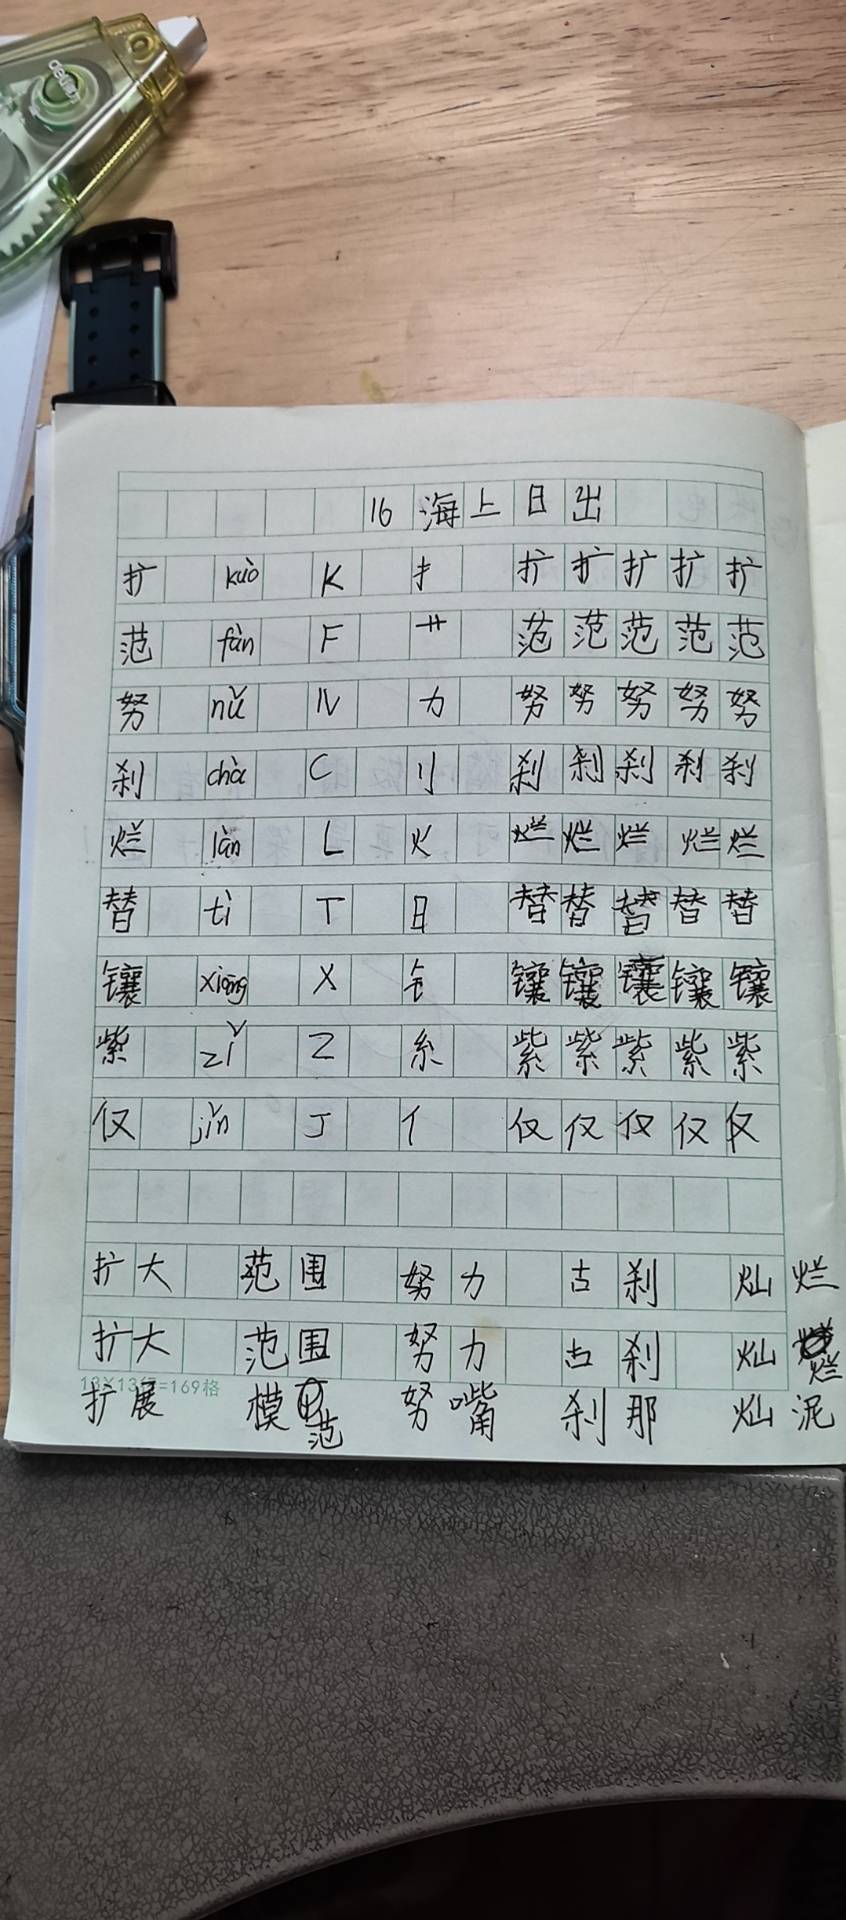 deli
16 海上日出
扩 kuò K 扌 扩扩扩扩扩
范 fàn F 艹 范范范范范
努 nǔ N 力 努努努努努
刹 chà C 刂 刹刹刹刹刹
烂 làn L 火 烂烂烂烂烂
替 tì T 日 替替替替替
镶 xiāng X 钅 镶镶镶镶镶
紫 zǐ Z 糸 紫紫紫紫紫
仅 jǐn J 亻 仅仅仅仅仅
扩大 范围 努力 古刹 灿烂
扩大 范围 努力 古刹 灿烂
13×13行=169格
扩展 模范 努嘴 刹那 灿泥